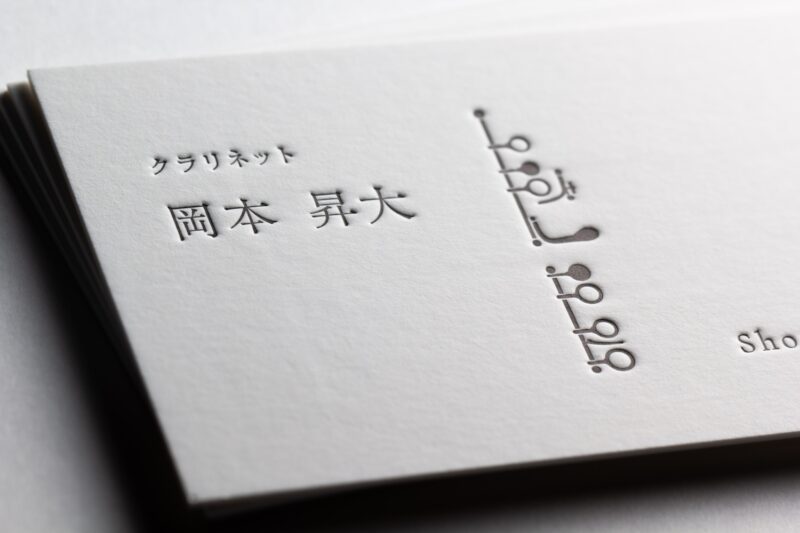 クラリネット
岡本 昇大
Sho